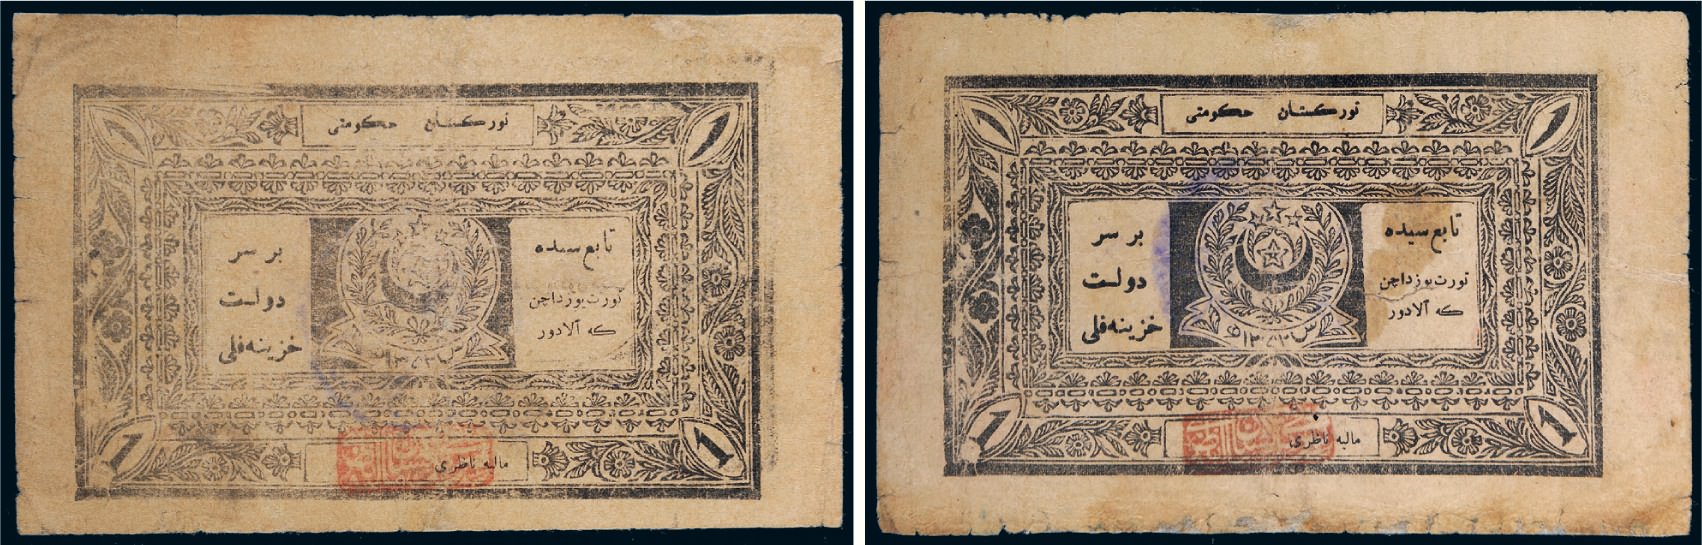 1
تورکستان حکومتی
1
بر سر
دولت
خزینه‌فلی
تابع سیده
تورت یوزداچن
که آلادور
1
مالیه ناظری
1
1
تورکستان حکومتی
1
بر سر
دولت
خزینه‌فلی
تابع سیده
تورت یوزداچن
که آلادور
س ۱۳۵۲
1
مالیه ناظری
1